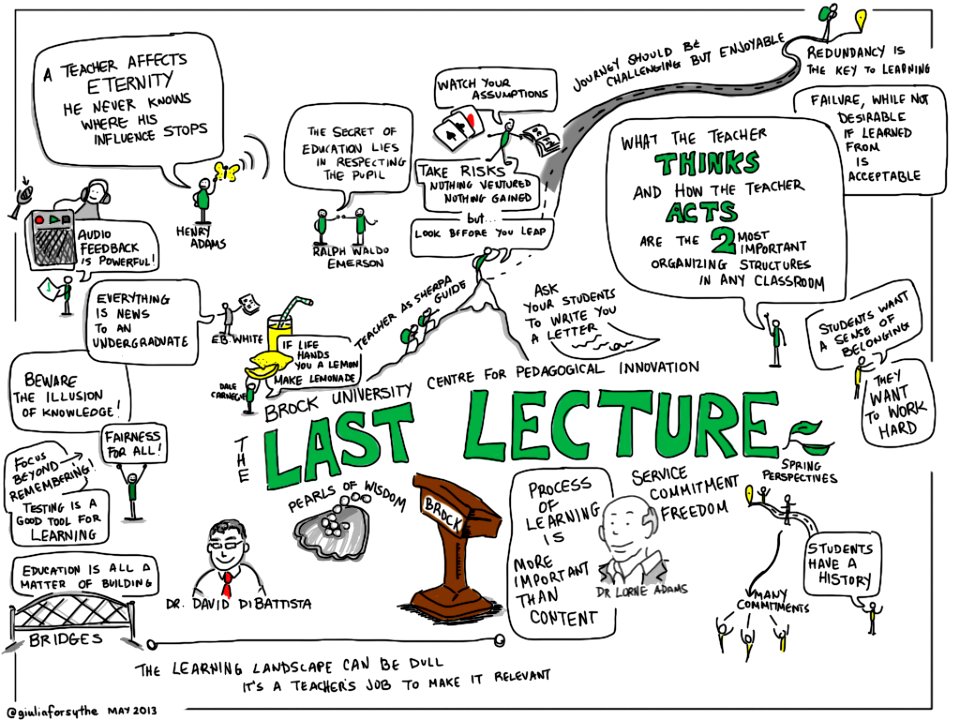 A TEACHER AFFECTS
ETERNITY
HE NEVER KNOWS
WHERE HIS
INFLUENCE STOPS
HENRY
ADAMS
AUDIO
FEEDBACK
IS POWERFUL!
THE SECRET OF
EDUCATION LIES
IN RESPECTING
THE PUPIL
RALPH WALDO
EMERSON
WATCH YOUR
ASSUMPTIONS
TAKE RISKS
NOTHING VENTURED
NOTHING GAINED
but...
LOOK BEFORE YOU LEAP
JOURNEY SHOULD BE
CHALLENGING BUT ENJOYABLE
REDUNDANCY IS
THE KEY TO LEARNING
FAILURE, WHILE NOT
DESIRABLE
IF LEARNED
FROM
IS
ACCEPTABLE
WHAT THE TEACHER
THINKS
AND HOW THE TEACHER
ACTS
ARE THE 2 MOST
IMPORTANT
ORGANIZING STRUCTURES
IN ANY CLASSROOM
EVERYTHING
IS NEWS
TO AN
UNDERGRADUATE
E.B. WHITE
IF LIFE
HANDS
YOU A LEMON
MAKE LEMONADE
DALE
CARNEGIE
TEACHER AS SHERPA
GUIDE
ASK
YOUR STUDENTS
TO WRITE YOU
A LETTER
STUDENTS WANT
A SENSE OF
BELONGING
THEY
WANT
TO WORK
HARD
BEWARE
THE ILLUSION
OF KNOWLEDGE!
FAIRNESS
FOR ALL!
FOCUS
BEYOND
REMEMBERING!
TESTING IS A
GOOD TOOL FOR
LEARNING
EDUCATION IS ALL A
MATTER OF BUILDING
BRIDGES
BROCK UNIVERSITY CENTRE FOR PEDAGOGICAL INNOVATION
THE
LAST LECTURE
SPRING
PERSPECTIVES
PEARLS OF WISDOM
DR. DAVID DIBATTISTA
BROCK
PROCESS
OF
LEARNING
IS
MORE
IMPORTANT
THAN
CONTENT
SERVICE
COMMITMENT
FREEDOM
DR LORNE ADAMS
STUDENTS
HAVE A
HISTORY
MANY
COMMITMENTS
THE LEARNING LANDSCAPE CAN BE DULL
IT'S A TEACHER'S JOB TO MAKE IT RELEVANT
@giuliaforsythe MAY 2013